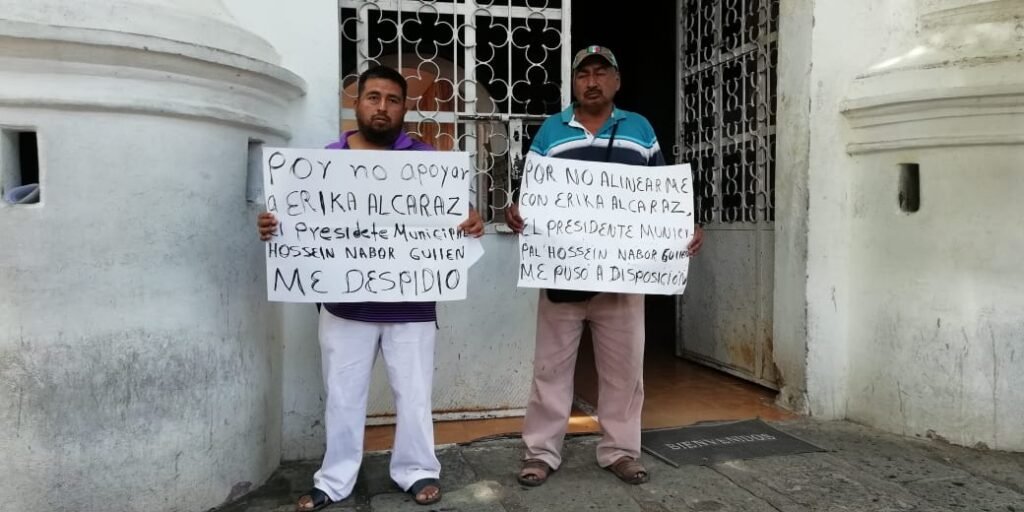 Por no apoyar
a ERIKA ALCARAZ
el Presidete Municipal
HOSSEIN NABOR GUIIEN
ME DESPIDIO
POR NO ALINEARME
CON ERIKA ALCARAZ,
EL PRESIDENTE MUNICI
PAL HOSSEIN NABOR GUIIEN
ME PUSO A DISPOSICIÓN
BIENVENIDOS